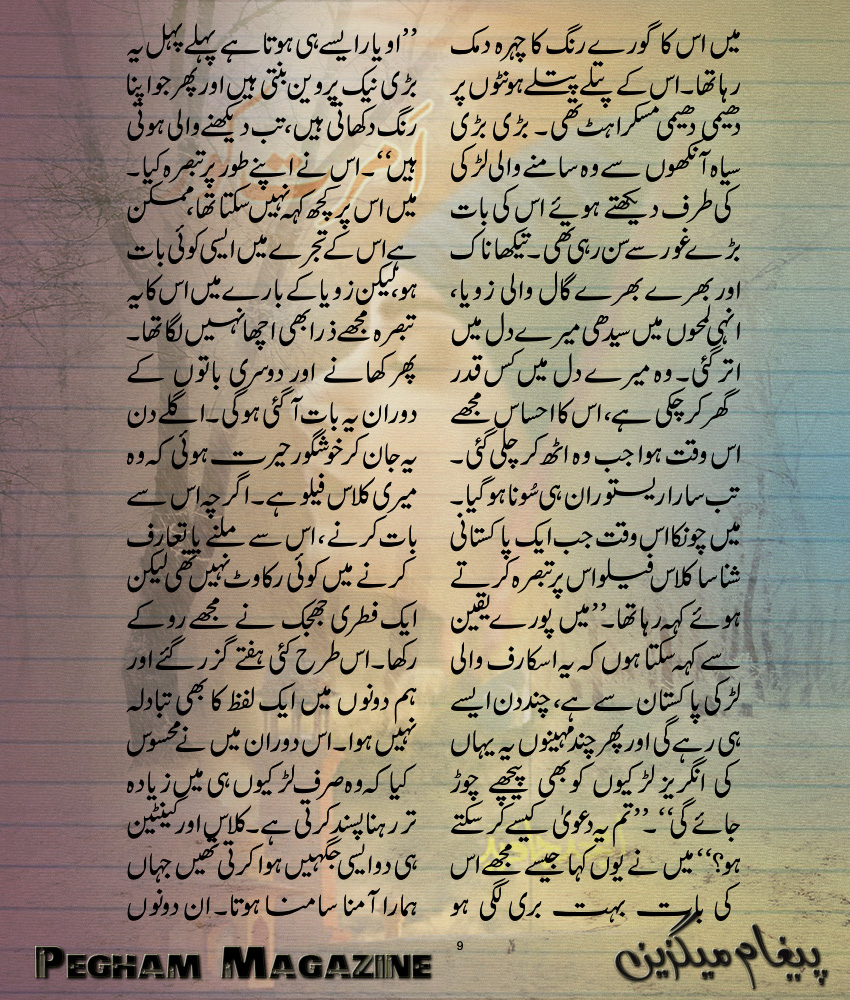 میں اس کا گورے رنگ کا چہرہ دمک
رہا تھا۔ اس کے پتلے پتلے ہونٹوں پر
دھیمی دھیمی مسکراہٹ تھی۔ بڑی بڑی
سیاہ آنکھوں سے وہ سامنے والی لڑکی
کی طرف دیکھتے ہوئے اس کی بات
بڑے غور سے سن رہی تھی۔ تیکھا ناک
اور بھرے بھرے گال والی زویا،
انہی لمحوں میں سیدھی میرے دل میں
اتر گئی۔ وہ میرے دل میں کس قدر
گھر کر چکی ہے، اس کا احساس مجھے
اس وقت ہوا جب وہ اٹھ کر چلی گئی۔
تب سارا ریستوران ہی سُونا ہو گیا۔
میں چونکا اس وقت جب ایک پاکستانی
شناسا کلاس فیلو اس پر تبصرہ کرتے
ہوئے کہہ رہا تھا۔ ’’میں پورے یقین
سے کہہ سکتا ہوں کہ یہ اسکارف والی
لڑکی پاکستان سے ہے، چند دن ایسے
ہی رہے گی اور پھر چند مہینوں یہ یہاں
کی انگریز لڑکیوں کو بھی پیچھے چھوڑ
جائے گی‘‘۔ ’’تم یہ دعویٰ کیسے کر سکتے
ہو؟‘‘ میں نے یوں کہا جیسے مجھے اس
کی بات بہت بری لگی ہو
’’او یار ایسے ہی ہوتا ہے پہلے پہل یہ
بڑی نیک پروین بنتی ہیں اور پھر جو اپنا
رنگ دکھاتی ہیں، تب دیکھنے والی ہوتی
ہیں‘‘۔ اس نے اپنے طور پر تبصرہ کیا۔
میں اس پر کچھ کہہ نہیں سکتا تھا، ممکن
ہے اس کے تجربے میں ایسی کوئی بات
ہو، لیکن زویا کے بارے میں اس کا یہ
تبصرہ مجھے ذرا بھی اچھا نہیں لگا تھا۔
پھر کھانے اور دوسری باتوں کے
دوران یہ بات آ گئی ہو گی۔ اگلے دن
یہ جان کر خوشگوار حیرت ہوئی کہ وہ
میری کلاس فیلو ہے۔ اگرچہ اس سے
بات کرنے، اس سے ملنے یا تعارف
کرنے میں کوئی رکاوٹ نہیں تھی لیکن
ایک فطری جھجک نے مجھے روکے
رکھا۔ اس طرح کئی ہفتے گزر گئے اور
ہم دونوں میں ایک لفظ کا بھی تبادلہ
نہیں ہوا۔ اس دوران میں نے محسوس
کیا کہ وہ صرف لڑکیوں ہی میں زیادہ
تر رہنا پسند کرتی ہے۔ کلاس اور کینٹین
ہی دو ایسی جگہیں ہوا کرتی تھیں جہاں
ہمارا آمنا سامنا ہوتا۔ ان دونوں
Pegham Magazine
9
پیغام میگزین